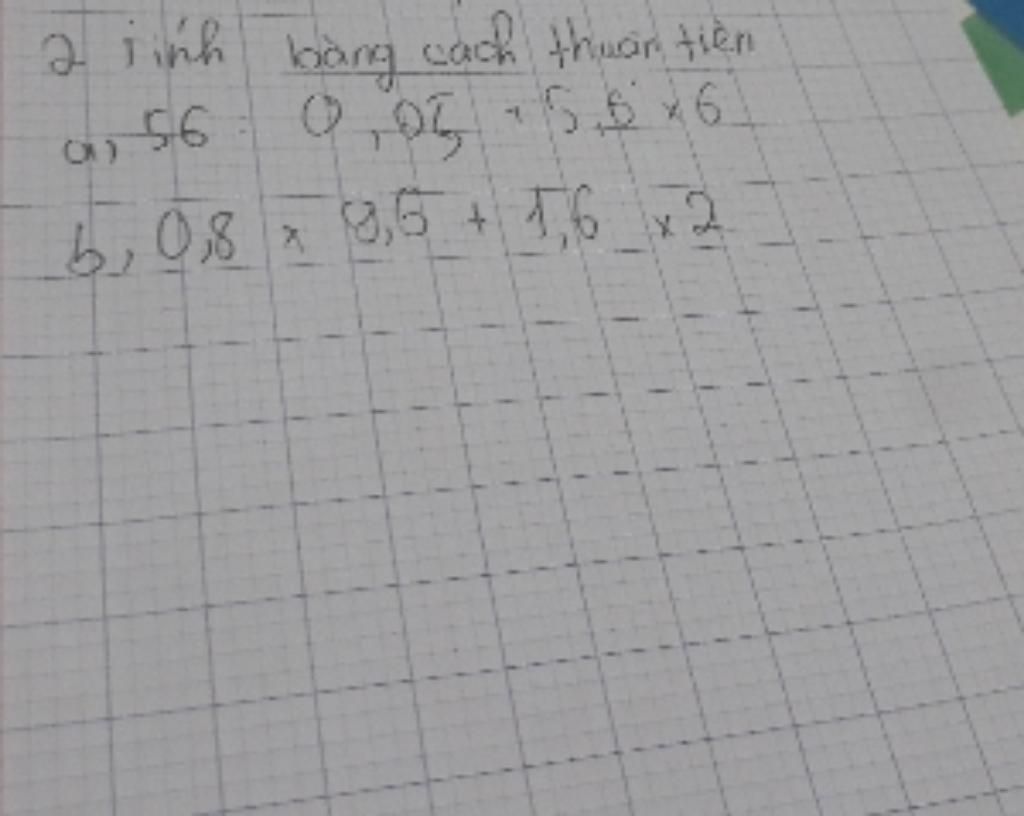 2 Tính bằng cách thuận tiện
a, 56 : 0,05 - 5,6 × 6
b, 0,8 × 9,6 + 1,6 × 2